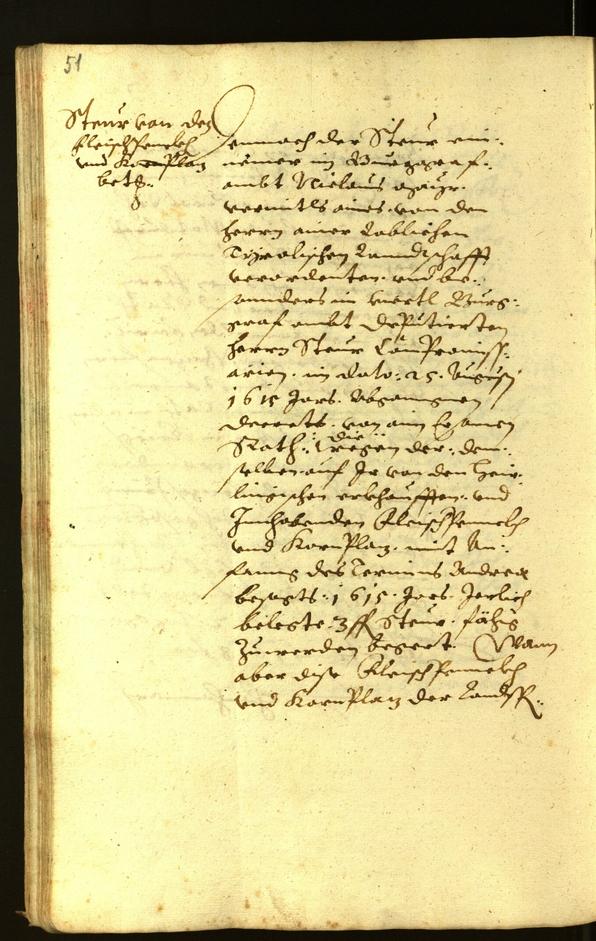 51
Steur von den
Fleischpenckh
und KornPlaz
betr:
Demnach der Steur ein:
nemer im Burggraf:
ambt Niclaus Mayr.
vermitls aines von den
herrn ainer Loblichen
Tyrolischen Lanndtschafft
verordenten. und be:
sonders im viertl Burg:
graf ambt dePutierten
herrn Steur ComPromiss:
arien. in dato: 25. Augusti
1615 Jars. Abganngnen
decrets. von aim Ersamen
Rath: wegen der: dem:
die
selben auf Jr von den
erkhaufften. und
Innhabenden Fleischpennckh
und KornPlaz. mit An:
fanng des Termins Andree
besagts: 1615. Jars. Jerlich
belegte 3 ff Steur. fähig
zuwerden begert. Wann
aber dise Fleischpennckh
und KornPlaz der Landtss: